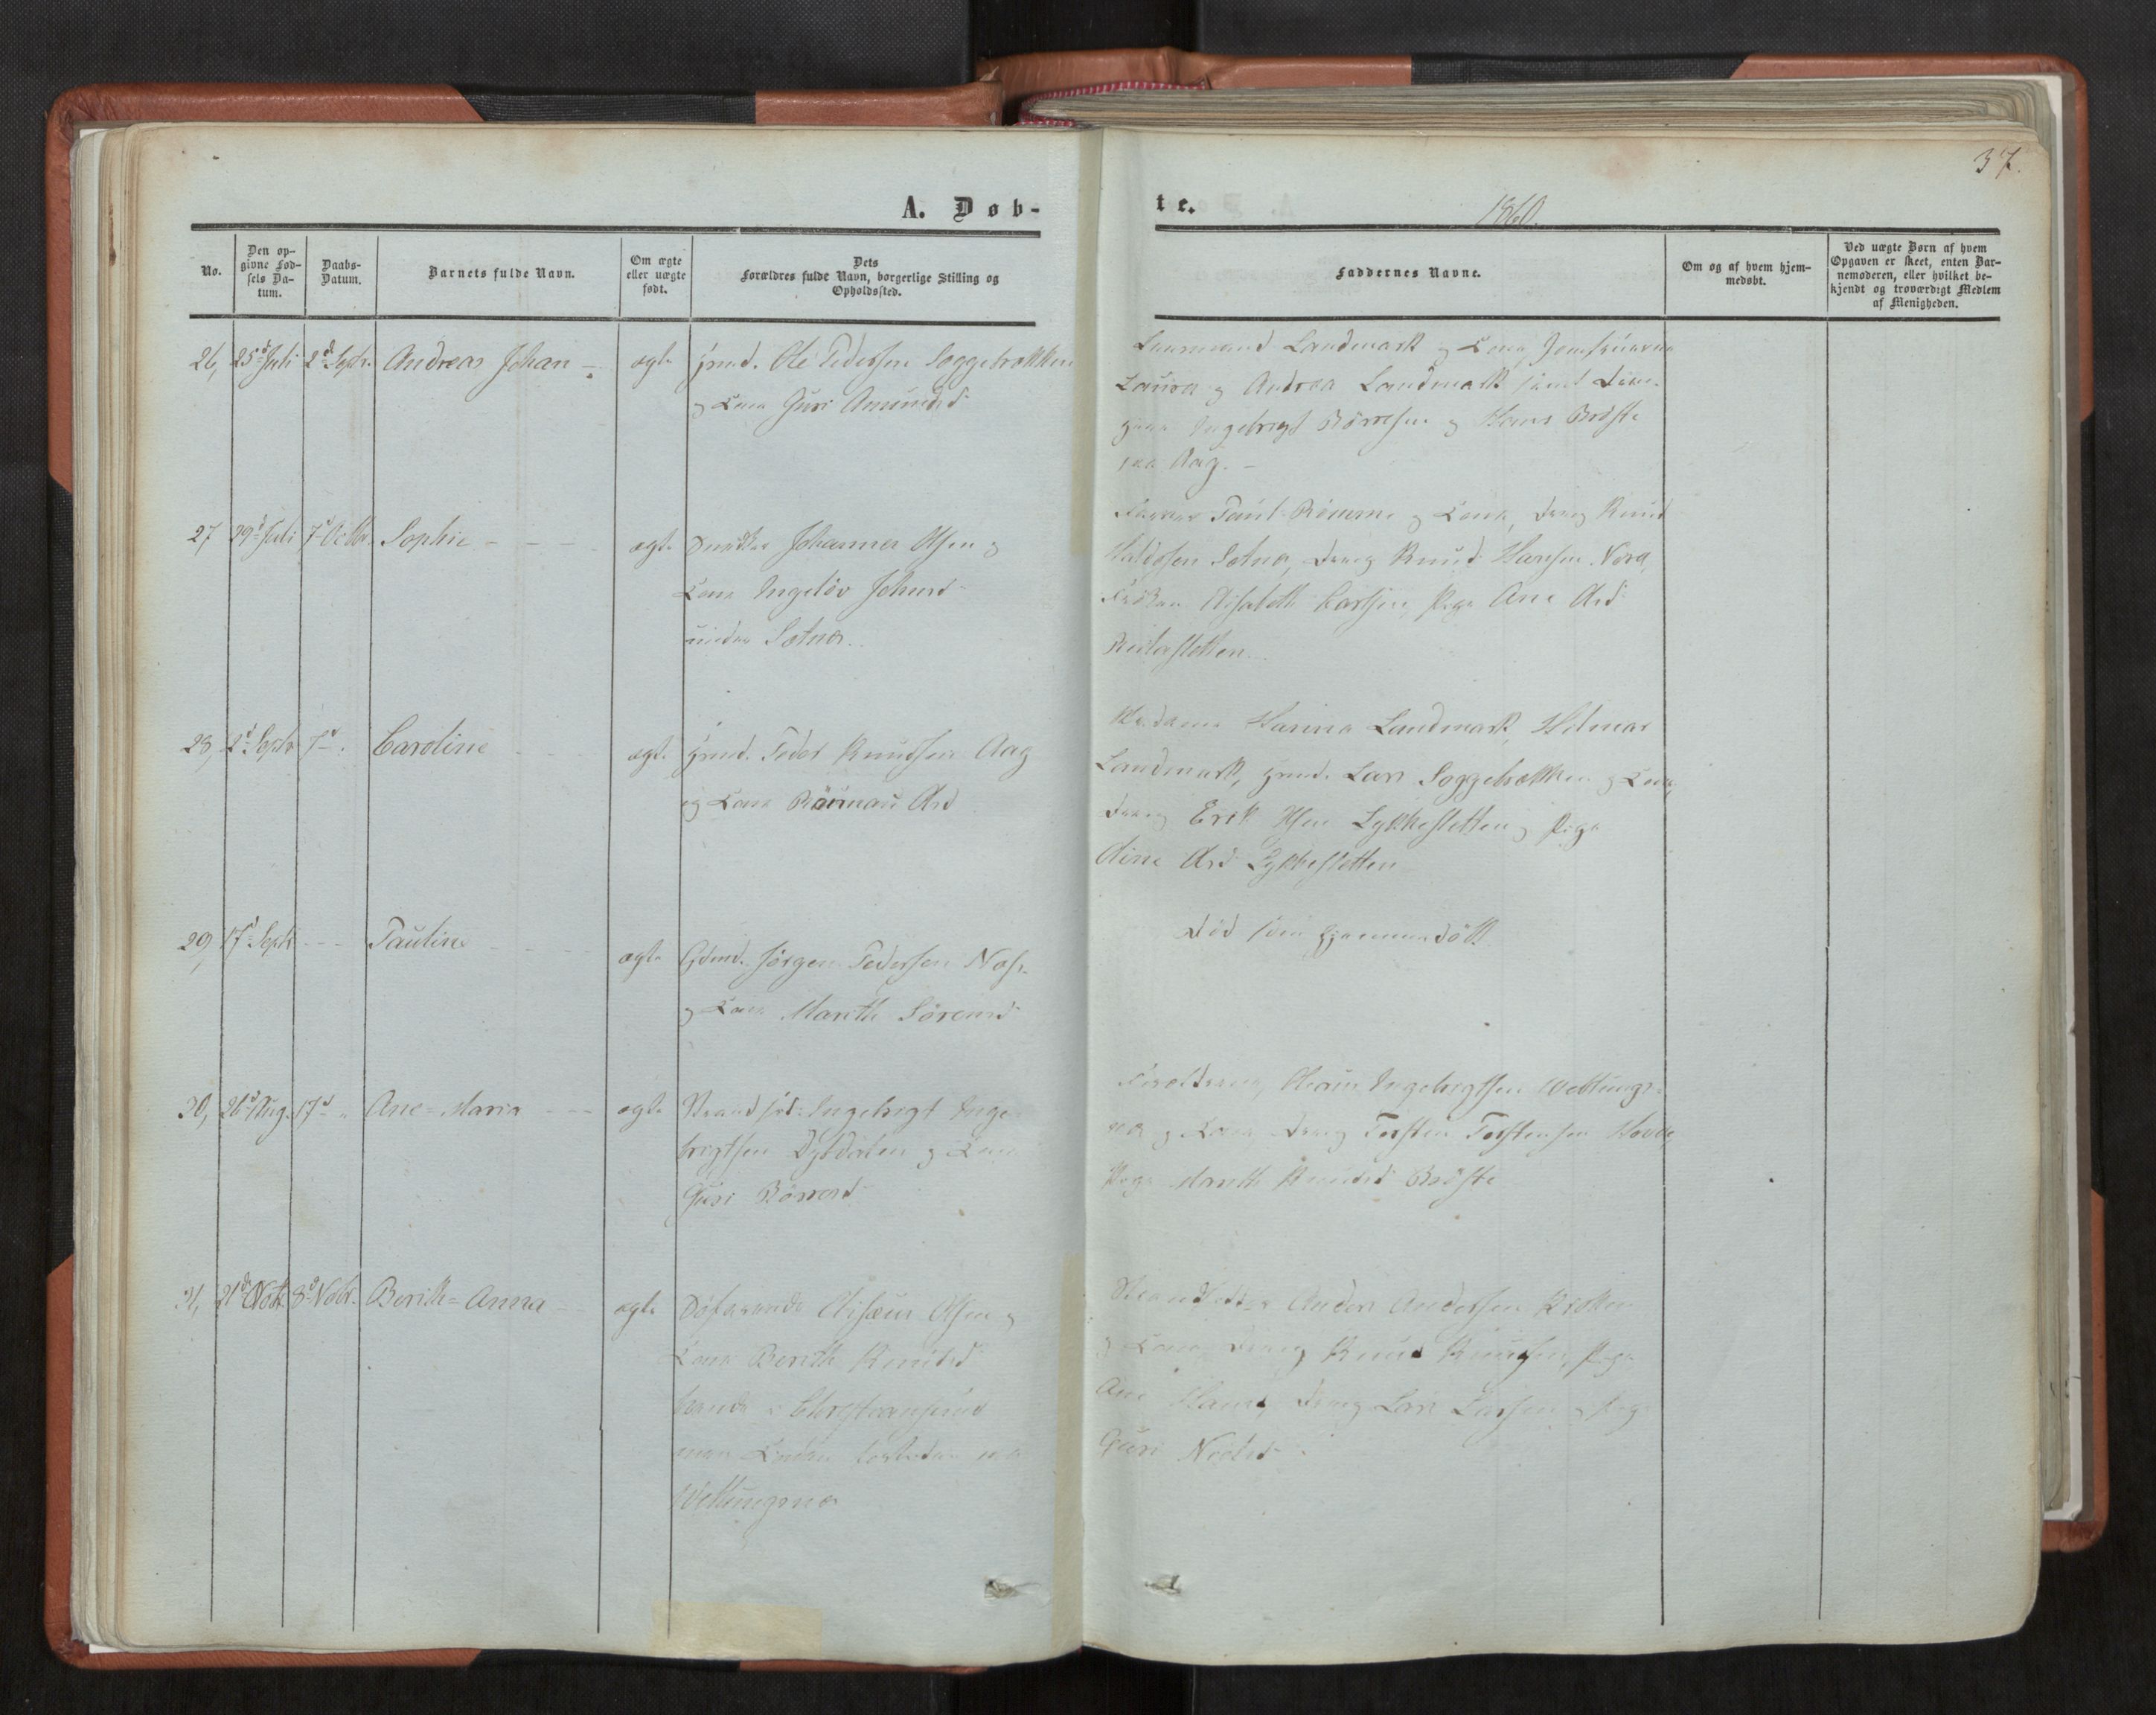 37.
A. Døb-
te.
1860.
No.
Den op-
givne Fød-
sels Da-
tum.
Daabs-
Datum.
Barnets fulde Navn.
Om ægte
eller uægte
født.
Dets
Forældres fulde Navn, borgerlige Stilling og
Opholdssted.
Faddernes Navne.
Om og af hvem hjem-
medøbt.
Ved uægte Børn af hvem
Opgaven er skeet, enten Bar-
nemoderen, eller hvilket be-
kjendt og troværdigt Medlem
af Menigheden.
26, 25d Juli 2d Septr. Andreas Johan - ægte Gmd. Ole Pedersen Soggebakken
og Kone Guri Amundsd
Landmark og Kone, Jomfruerne
Laura og Andrea Landmark samt
Ingebrigt Börresen og Hans Bröste
paa Aag. -
27 29d Juli 7d Octbr. Sophie - - - ægte Snedker Johannes Olsen og
Kone Ingeløv Johnsd
under Sætnæs.
og Kone, Dreng Knud
Sætnæs, Dreng Knud Hansen Nora,
Elisabeth Larsen, Pige Ane Olsd
28, 2d Septr 7d " Caroline ægte Gmd. Peder Knudsen Aag
og Kone Rönnau Olsd
Madame Hanna Landmark, Hilmar
Landmark, Gmd. Lars Soggebakken og Kone,
Dreng Erik Olsen Lykkesletten og Pige
Oline Olsd Lykkesletten
29, 17d Septr - - - Pauline - - - ægte Gdmd. Jörgen Pedersen Næs.
og Kone Marith Sörensd
Död som hjemmedöbt.
30, 26d Aug. 17d " Ane-Maria - - ægte Strandsid. Ingebrigt Inge-
brigtsen Dybdalen og Kone
Guri Börresd
Ingebrigtsen Vettungs-
næs og Kone, Dreng Torsten Torstensen Hovde,
Pige Marith Knudsd Bröste
31, 21d Octbr 8d Novbr. Berith-Anna ægte Söfarende Elisæus Olsen og
Kone Berith Knudsd
boende i Christiansund
men Konen
Vettungsnæs
Strandsidder Anders Andersen
og Kone, Dreng Knud Knudsen, Pige
Ane Hansd, Dreng Lars Larsen og Pige
Guri Nielsd